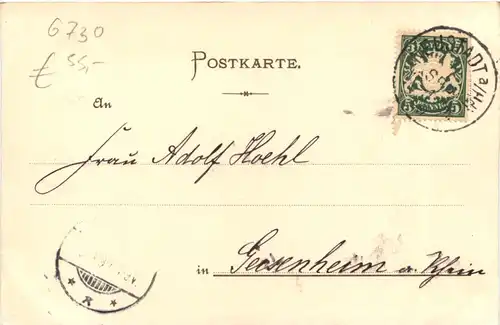 6730
£ 55,-
POSTKARTE.
An
Frau Adolf Hoehl
in Geisenheim a. Rhein
USTADT a/H
5 PFENNIG 5